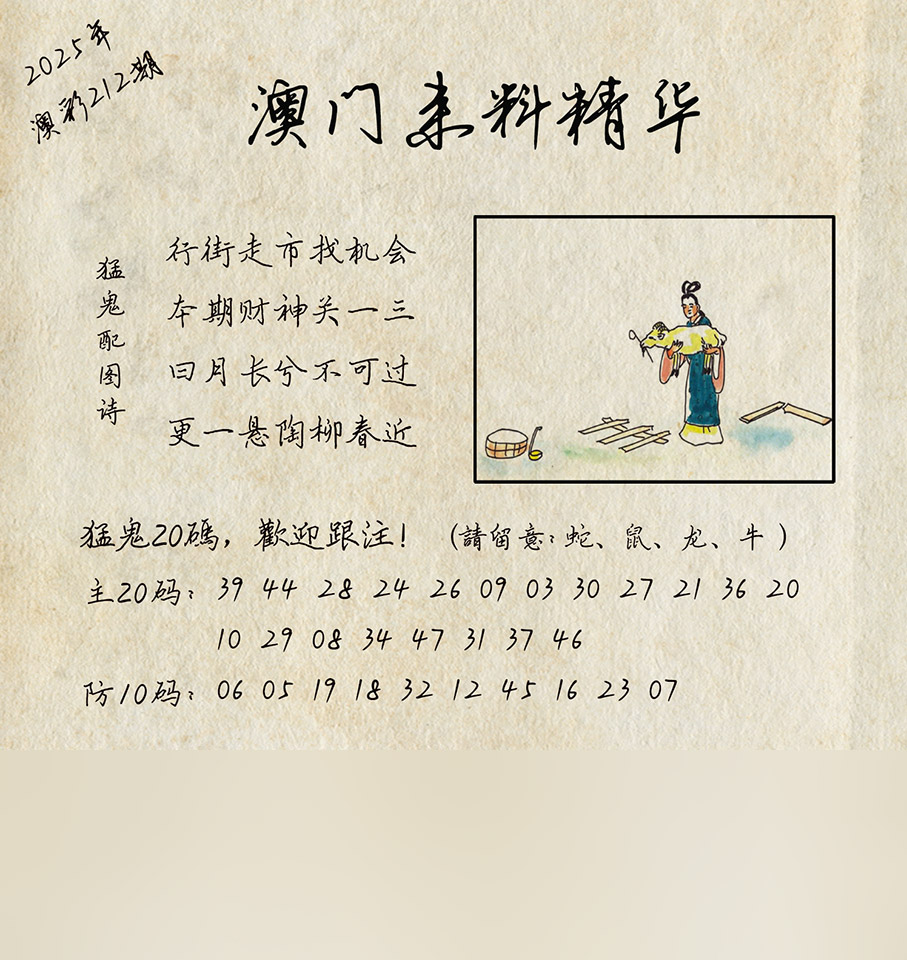 2025年
澳彩212期
澳门来料精华
猛鬼配图诗
行街走市找机会
本期财神关一三
曰月长兮不可过
更一悬陶柳春近
猛鬼20碼，歡迎跟注！（請留意：蛇、鼠、龙、牛）
主20码：39 44 28 24 26 09 03 30 27 21 36 20
10 29 08 34 47 31 37 46
防10码：06 05 19 18 32 12 45 16 23 07